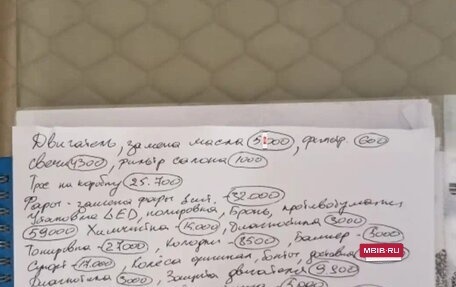 Двигатель, замена масла 5200, фильтр 600
свечи 4300, фильтр салона 1000
Трос на коробку 25.700
Фары - замена фары 2 шт. - 32.000
Установка LED, полировка, Бронь, противотуманки
59000 Химчистка - 15000, Диагностика 3000
Тонировка - 27000, Колодки - 8500, Бампер - 5000
- 17.000, Колёса оригинал, болты, доставка
MBIB.RU
Диагностика 3000, Защита двигателя 9.900
5.000